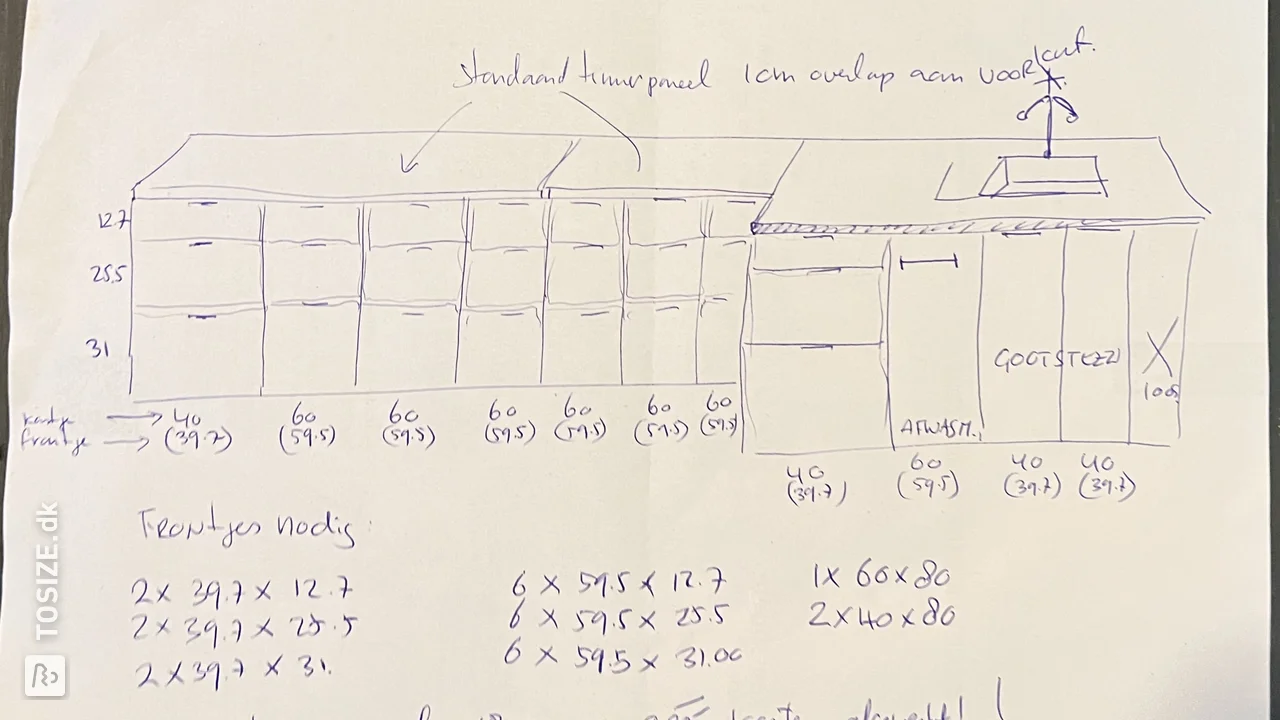 Standaard timmerpaneel 1cm overlap aan voorkant.
12.7
25.5
31
kastje → 40 60 60 60 60 60 60
frontje → (39.7) (59.5) (59.5) (59.5) (59.5) (59.5) (59.5)
GOOTSTEEN
X
loos
AFWASM.
40 60 40 40
(39.7) (59.5) (39.7) (39.7)
Frontjes nodig:
2 x 39.7 x 12.7 6 x 59.5 x 12.7 1x 60 x 80
2 x 39.7 x 25.5 6 x 59.5 x 25.5 2 x 40 x 80
2 x 39.7 x 31. 6 x 59.5 x 31.00
TOSIZE.dk